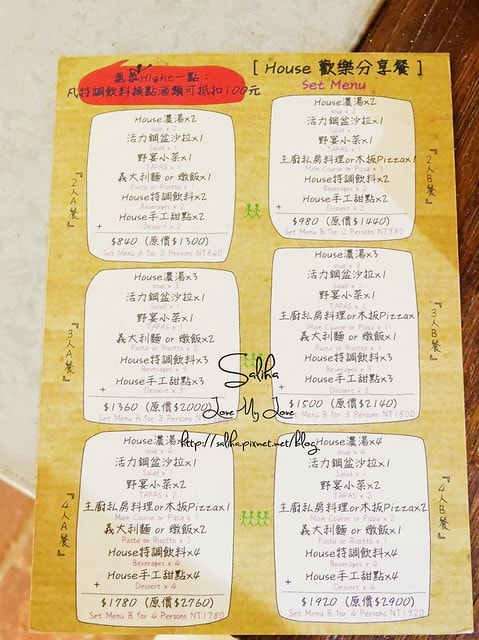 氣氛Hight一點：
凡特調飲料換點酒類可抵扣100元
[ House 歡樂分享餐 ]
Set Menu
『2人A餐』
House濃湯x2
soup x 2
活力鋼盆沙拉x1
Salad x 1
野宴小菜x1
TAPAS x 1
義大利麵 or 燉飯x1
Pasta or Risotto x 1
House特調飲料x2
Beverages x 2
House手工甜點x2
+ Dessert x 2
$840 (原價$1300)
Set Menu A for 2 Persons NT840
『2人B餐』
House濃湯x2
soup x 2
活力鋼盆沙拉x1
Salad x 1
野宴小菜x1
TAPAS x 1
主廚私房料理or木板Pizzax1
Main Course or Pizza x 1
House特調飲料x2
Beverages x 2
House手工甜點x2
+ Dessert x 2
$980 (原價$1440)
Set Menu B for 2 Persons NT980
『3人A餐』
House濃湯x3
soup x 3
活力鋼盆沙拉x1
Salad x 1
野宴小菜x1
TAPAS x 1
義大利麵 or 燉飯x2
Pasta or Risotto x 2
House特調飲料x3
Beverages x 3
House手工甜點x3
+ Dessert x 3
$1360 (原價$2000)
Set Menu A for 3 Persons
『3人B餐』
House濃湯x3
soup x 3
活力鋼盆沙拉x1
Salad x 1
野宴小菜x1
TAPAS x 1
主廚私房料理or木板Pizzax1
Main Course or Pizza x 1
義大利麵 or 燉飯x1
House特調飲料x3
Beverages x 3
House手工甜點x3
+ Dessert x 3
$1500 (原價$2140)
Menu B for 3 Persons NT1500
Saliha
Love My Love
http://saliha.pixnet.net/blog
『4人A餐』
House濃湯x4
soup x 4
活力鋼盆沙拉x1
Salad x 1
野宴小菜x2
TAPAS x 2
主廚私房料理or木板Pizzax1
Main Course or Pizza x 1
義大利麵 or 燉飯x2
Pasta or Risotto x 2
House特調飲料x4
Beverages x 4
House手工甜點x4
+ Dessert x 4
$1780 (原價$2760)
Set Menu B for 4 Persons NT1780
『4人B餐』
House濃湯x4
soup x 4
活力鋼盆沙拉x1
Salad x 1
野宴小菜x2
TAPAS x 2
主廚私房料理or木板Pizzax2
Main Course or Pizza x 2
義大利麵 or 燉飯x1
Pasta or Risotto x 1
House特調飲料x4
Beverages x 4
House手工甜點x4
+ Dessert x 4
$1920 (原價$2900)
Set Menu B for 4 Persons NT1920